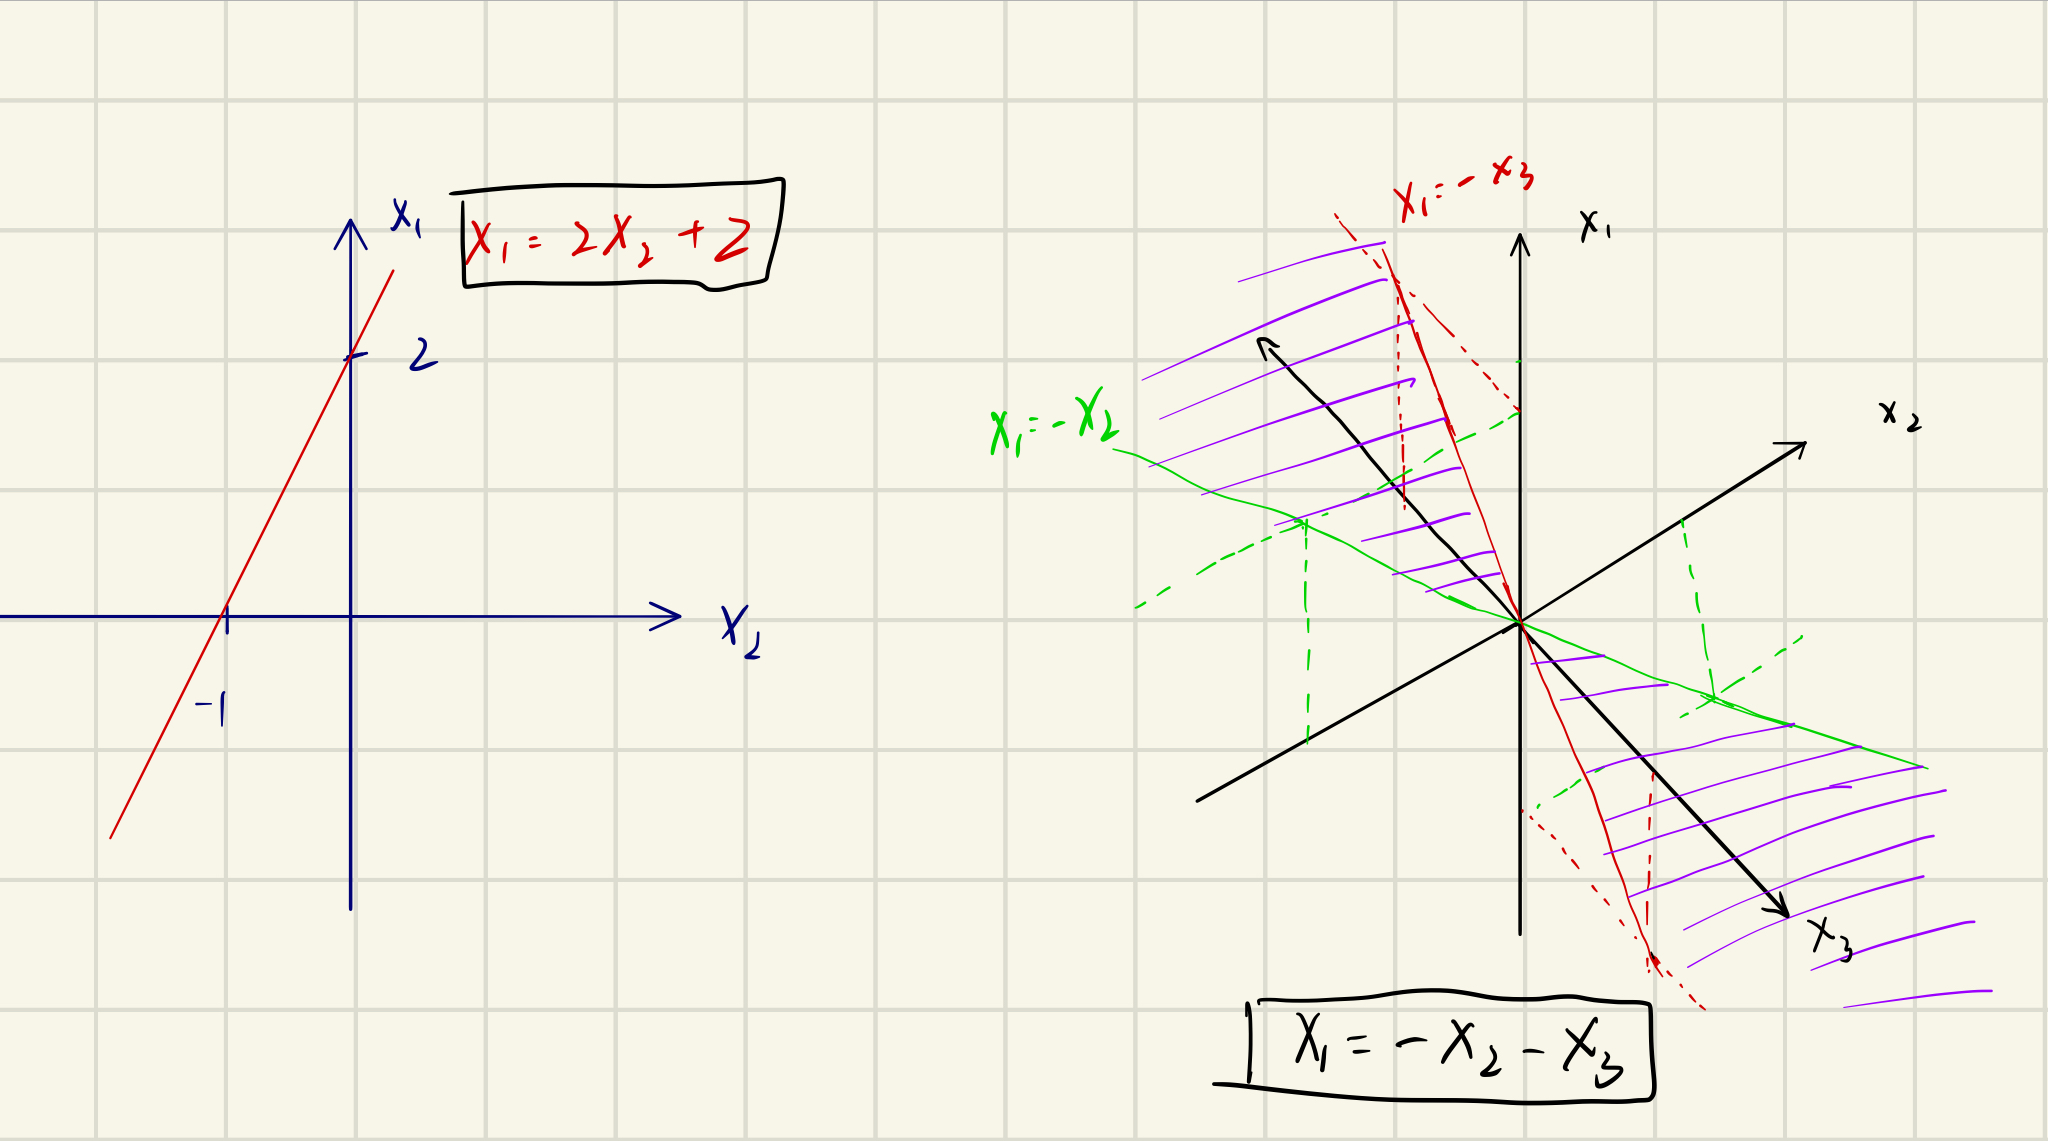 X₁
X₁ = 2X₂ + 2
2
X₂
-1
X₁ = - X₃
X₁
X₁ = - X₂
X₂
X₃
X₁ = - X₂ - X₃